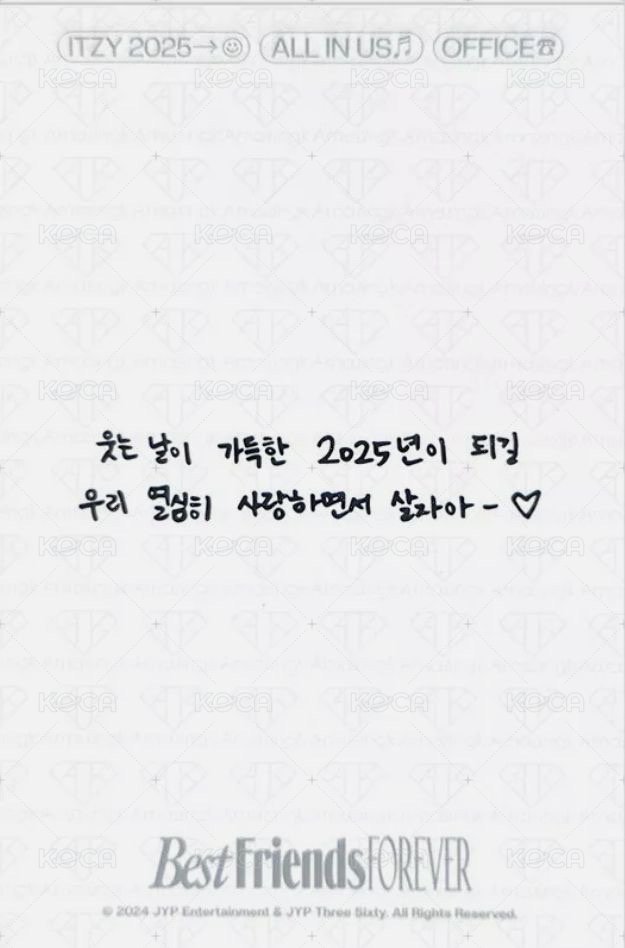 ITZY 2025→☺ ALL IN US♬ OFFICE☎
웃는 날이 가득한 2025년이 되길
우리 열심히 사랑하면서 살자아 - ♡
Best Friends FOREVER
© 2024 JYP Entertainment & JYP Three Sixty. All Rights Reserved.